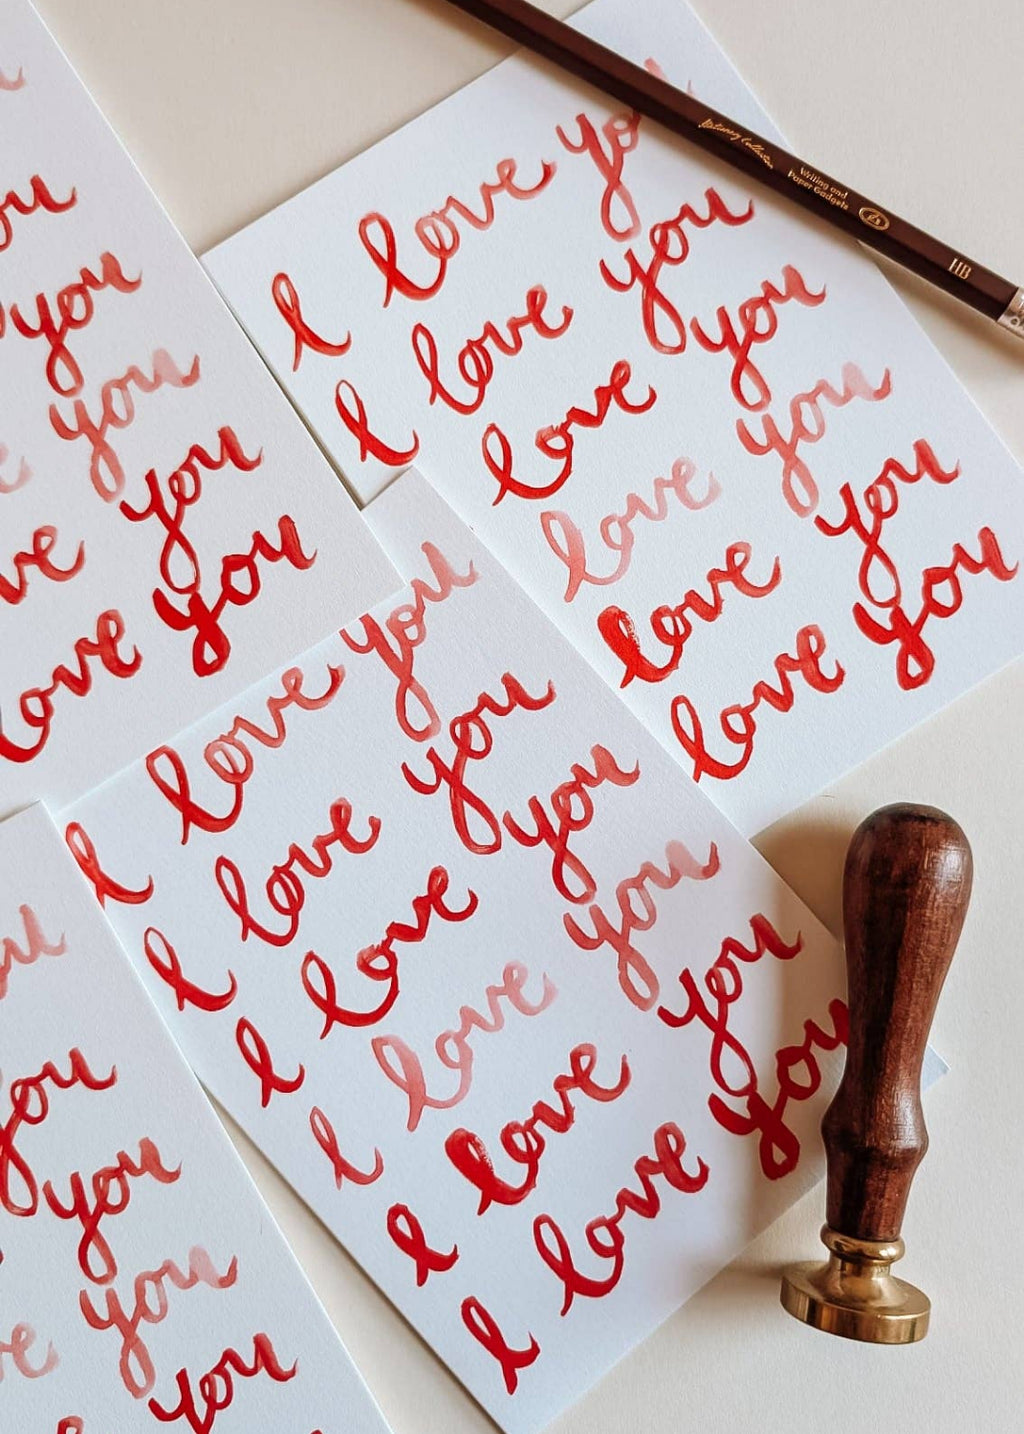 Stationery Collection
Writing and
Paper Gadgets
HB
I love you
I love you
love you
love you
love you
love you
you
you
you
you
love you
I love you
I love you
I love you
I love you
I love you
I love you
you
you
you
you